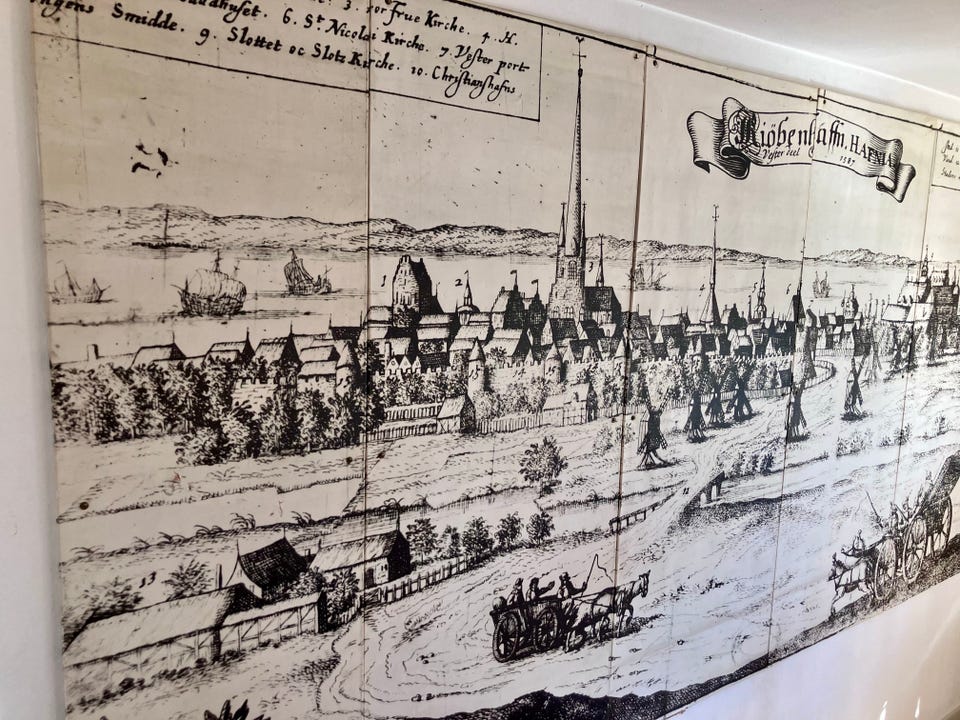 3. vor Frue Kirche. 4. H.
6. St Nicolai Kirche. 7. Vester port
Smidde. 9. Slottet oc Slotz Kirche. 10. Christianshafns
Kiöbenhaffn, HAFNIA
Vester deel 1587
1
2
3
11
13